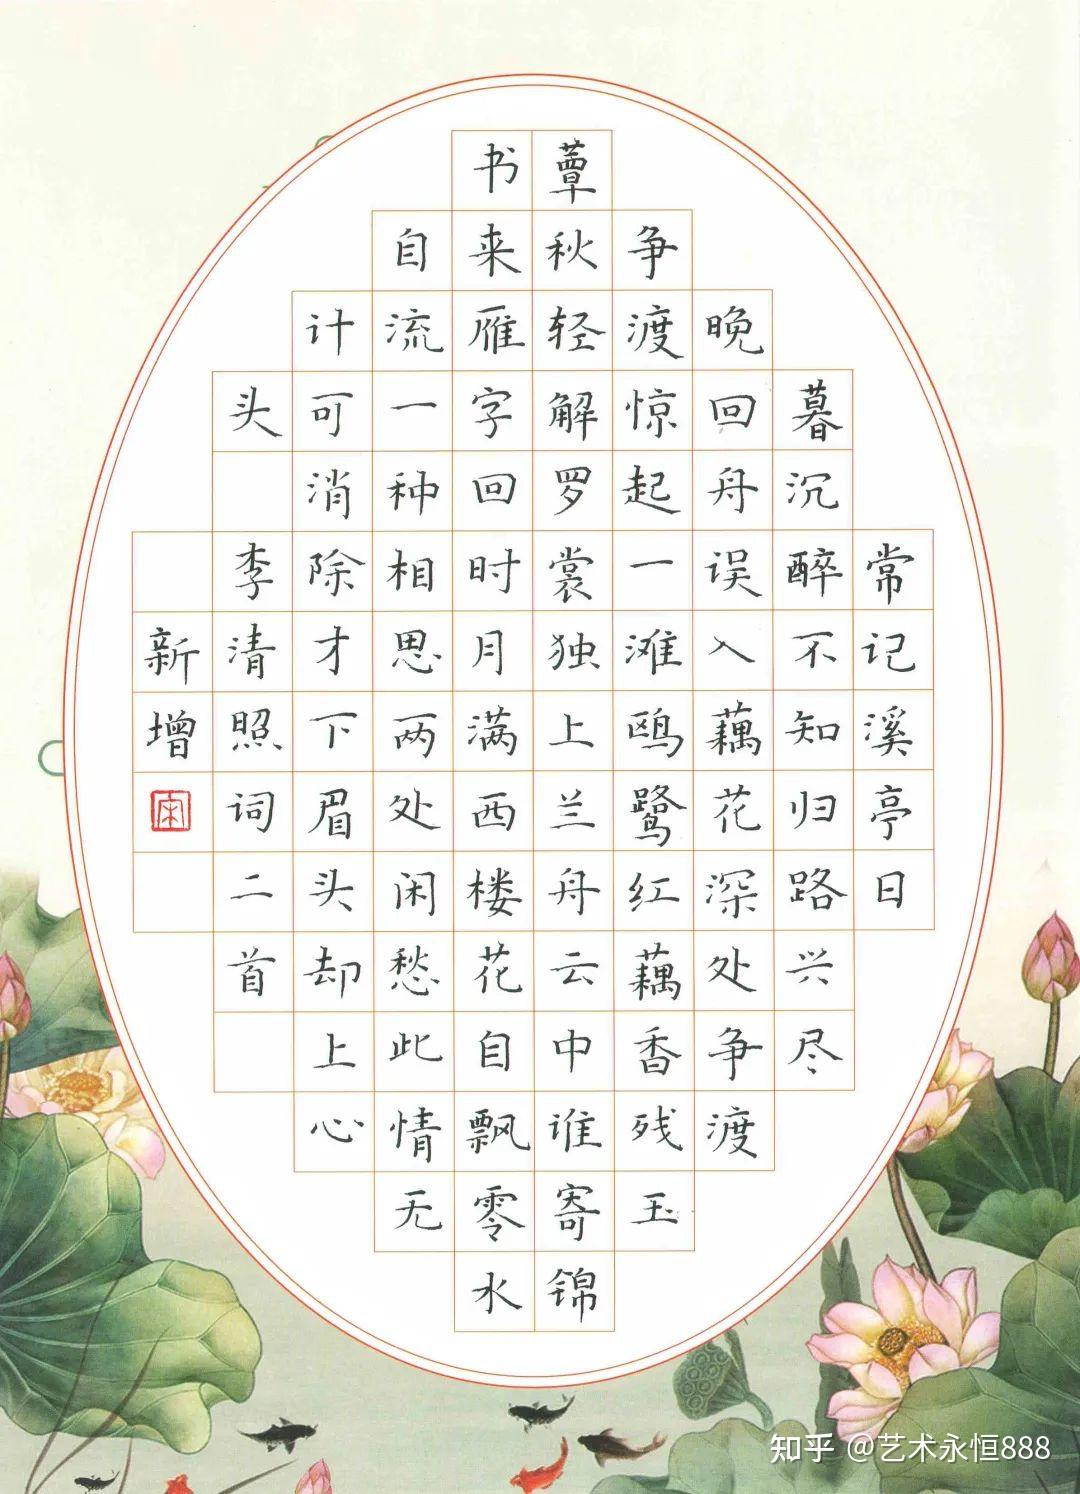 常记溪亭日
暮沉醉不知归路兴尽
晚回舟误入藕花深处争渡
争渡惊起一滩鸥鹭红藕香残玉
蕈秋轻解罗裳独上兰舟云中谁寄锦
书来雁字回时月满西楼花自飘零水
自流一种相思两处闲愁此情无
计可消除才下眉头却上心
头 李清照词二首
新增
知乎 @艺术永恒888